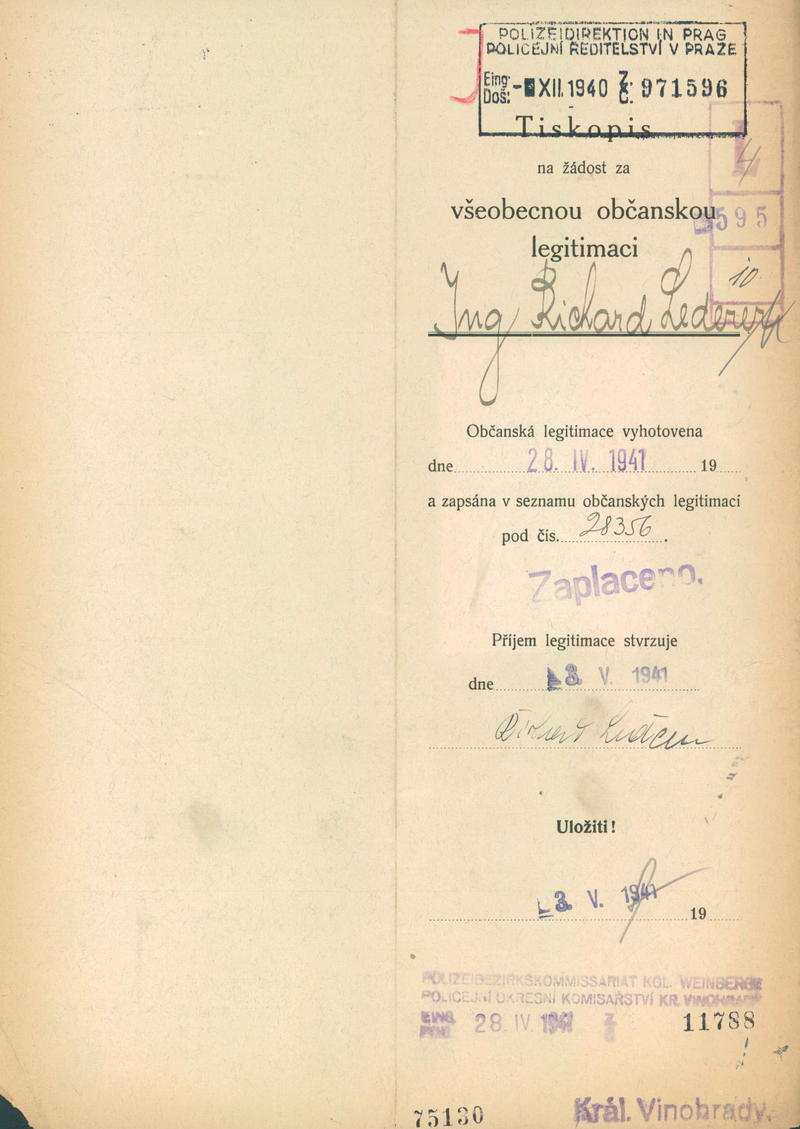 POLIZEIDIREKTION IN PRAG
POLICEJNÍ ŘEDITELSTVÍ V PRAZE
Eing: Doš: - XII. 1940 Z: Č: 971596
Tiskopis
4
na žádost za
všeobecnou občanskou
595
legitimaci
10
Ing Richard Lederer
Občanská legitimace vyhotovena
dne 28. IV. 1941 19
a zapsána v seznamu občanských legitimací
pod čís. 28356.
Zaplaceno.
Příjem legitimace stvrzuje
dne 3. V. 1941
Richard Lederer
Uložiti!
3. V. 1941 19
POLIZEIBEZIRKSKOMMISSARIAT KGL. WEINBERGE
POLICEJNÍ OKRESNÍ KOMISAŘSTVÍ KR. VINOHRADY
EING. 28. IV. 1941 11788
75130 Král. Vinohrady.